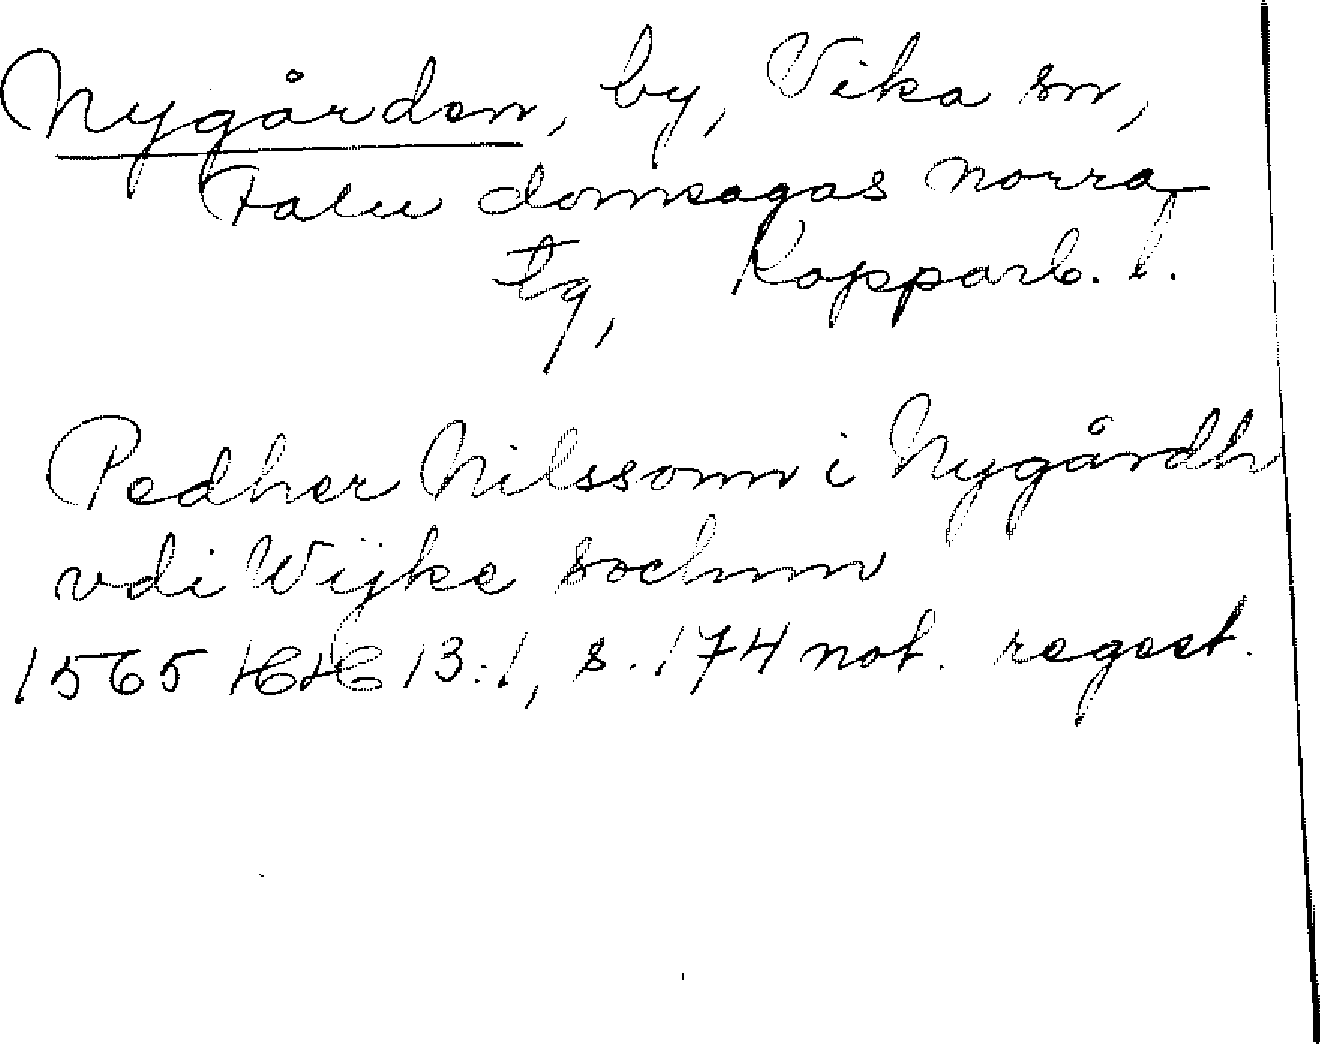 Nygården, by, Vika sn,
Falu domsagas norra
tg, Kopparb. l.
Pedher Nilssonn i Nygårdh
vdi Wijke sochnn
1565 HH 13:1, s. 174 not. regest.